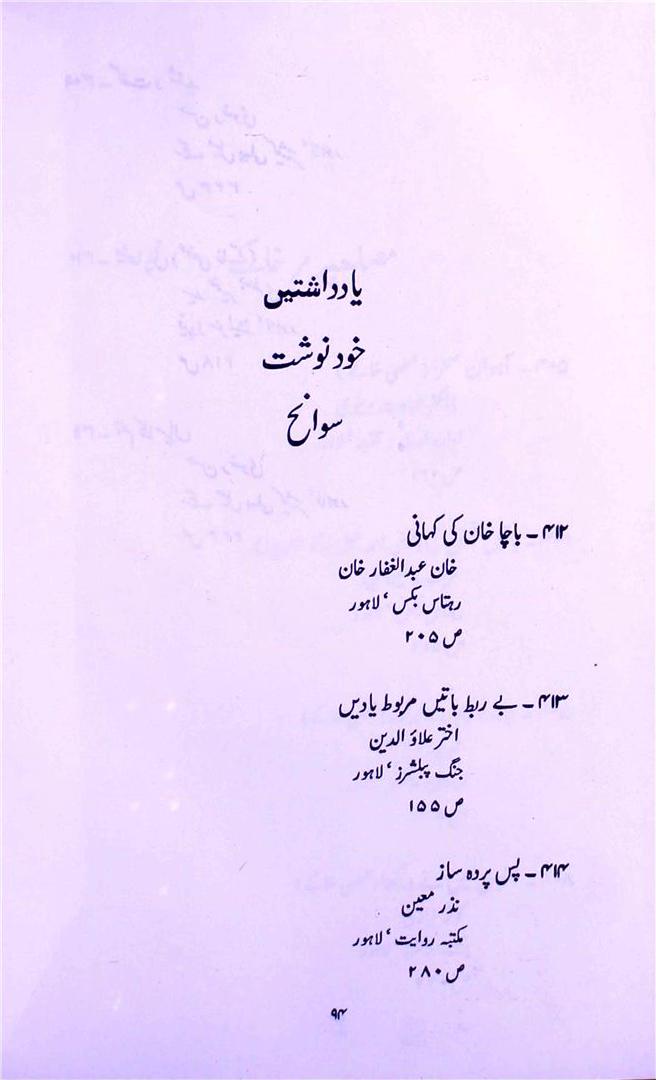 یادداشتیں
خود نوشت
سوانح
۴۱۲ - باچا خان کی کہانی
خان عبدالغفار خان
رہتاس بکس ‘ لاہور
ص ۲۰۵
۴۱۳ - بے ربط باتیں مربوط یادیں
اختر علاؤ الدین
جنگ پبلشرز ‘ لاہور
ص ۱۵۵
۴۱۴ - پس پردہ ساز
نذر معین
مکتبہ روایت ‘ لاہور
ص ۲۸۰
۹۴